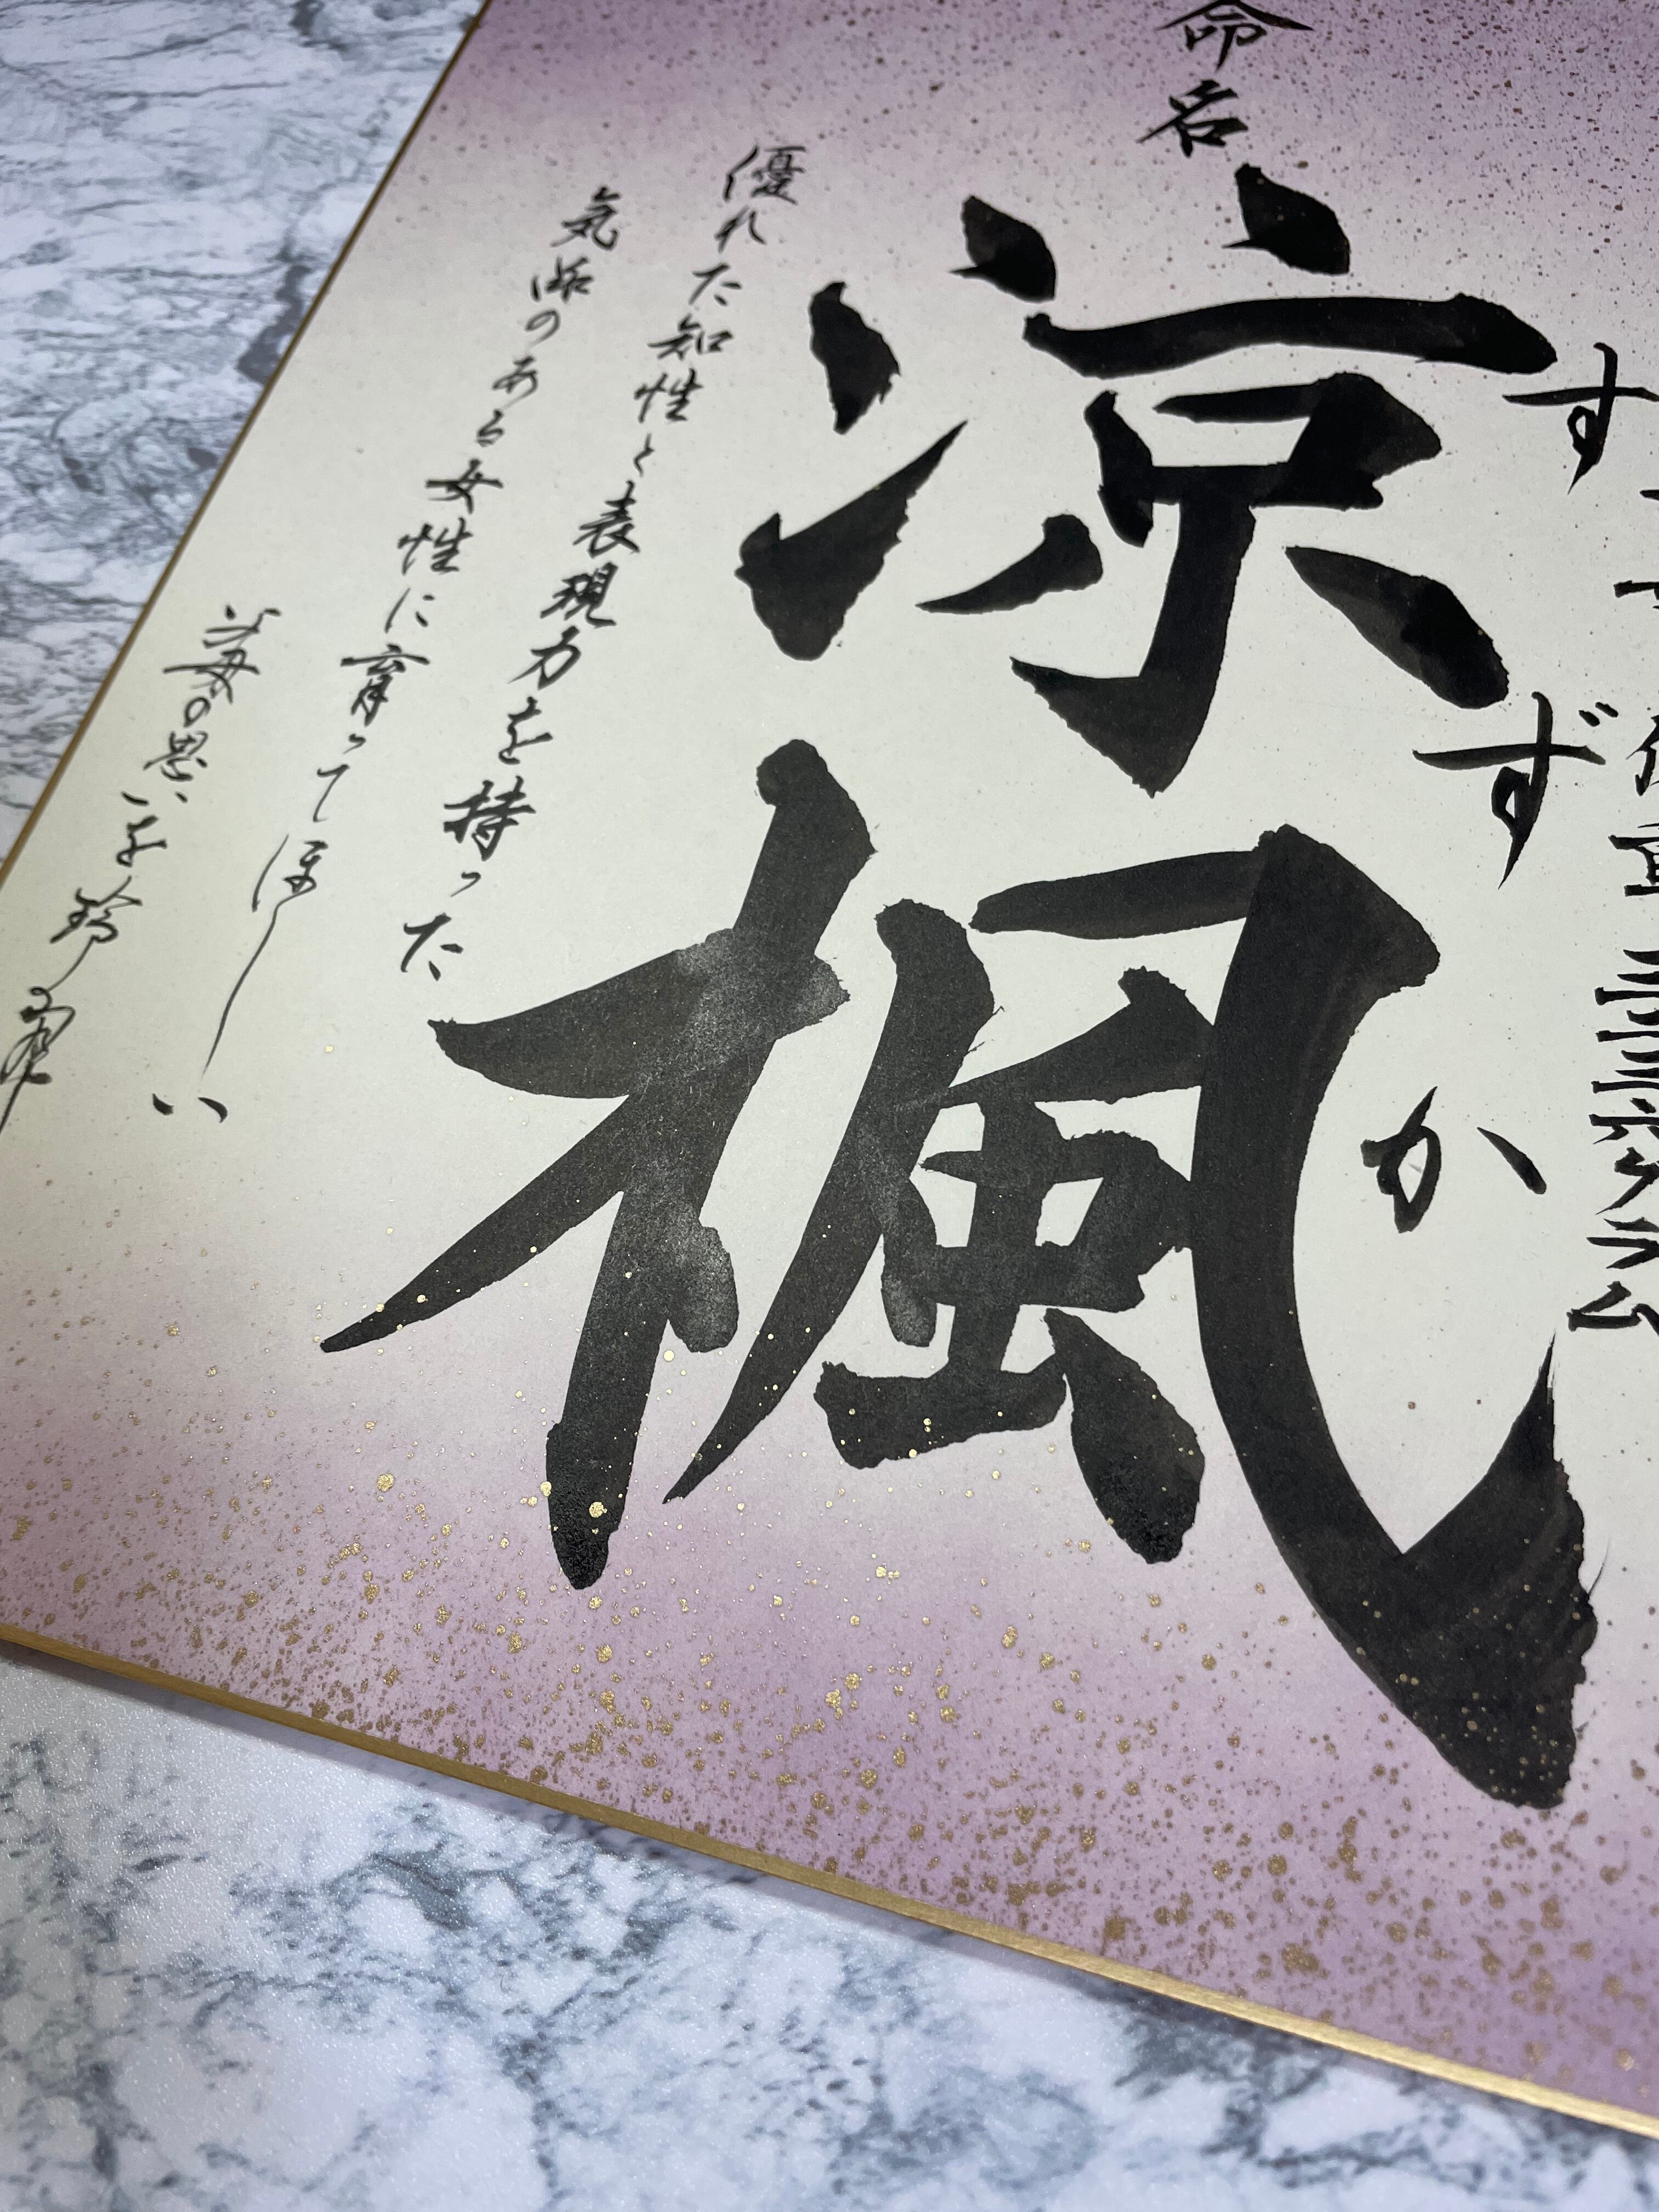 グラム
すずか
命名
涼楓
優れた知性と表現力を持った
気品のある女性に育ってほしい
父母の思いを